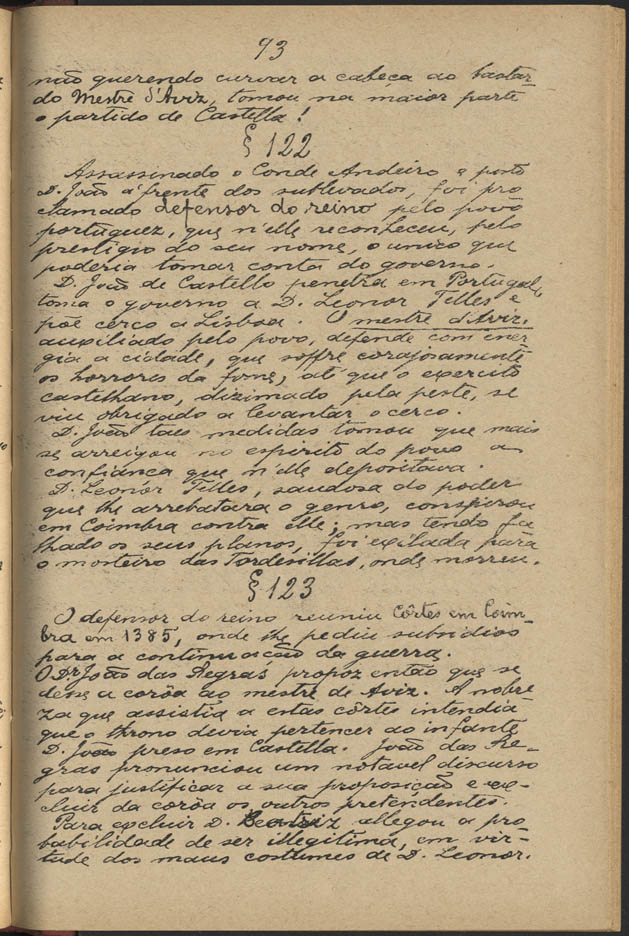 93
não querendo curvar a cabeça ao bastar-
do Mestre d'Aviz, tomou na maior parte
o partido de Castella!
§ 122
Assassinado o Conde Andeiro e posto
D. João á frente dos sublevados, foi pro
clamado defensor do reino pelo povo
portuguez, que n'elle reconheceu, pelo
prestigio do seu nome, o unico que
poderia tomar conta do governo.
D. João de Castella penetra em Portugal,
toma o governo a D. Leonor Telles e
põe cerco a Lisboa. O mestre d'Aviz,
auxiliado pelo povo, defende com ener
gia a cidade, que soffre corajosamente
os horrores da fome, até que o exercito
castelhano, dizimado pela peste, se
viu obrigado a levantar o cerco.
D. João taes medidas tomou que mais
se arreigou no espirito do povo a
confiança que n'elle depositava.
D. Leonor Telles, saudosa do poder
que lhe arrebatara o genro, conspirou
em Coimbra contra elle; mas tendo fa
lhado os seus planos, foi exilada para
o mosteiro das Tordesillas, onde morreu.
§ 123
O defensor do reino reuniu Côrtes em Coim-
bra em 1385, onde lhe pediu subsidios
para a continuação da guerra.
O Dr João das Regras propoz então que se
désse a corôa ao mestre de Aviz. A nobre
za que assistia a estas côrtes intendia
que o throno devia pertencer ao infante
D. João preso em Castella. João das Re-
gras pronunciou um notavel discurso
para justificar a sua proposição e ex-
cluir da corôa os outros pretendentes.
Para excluir D. Beatriz allegou a pro
babilidade de ser illegitima, em vir-
tude dos maus costumes de D. Leonor.